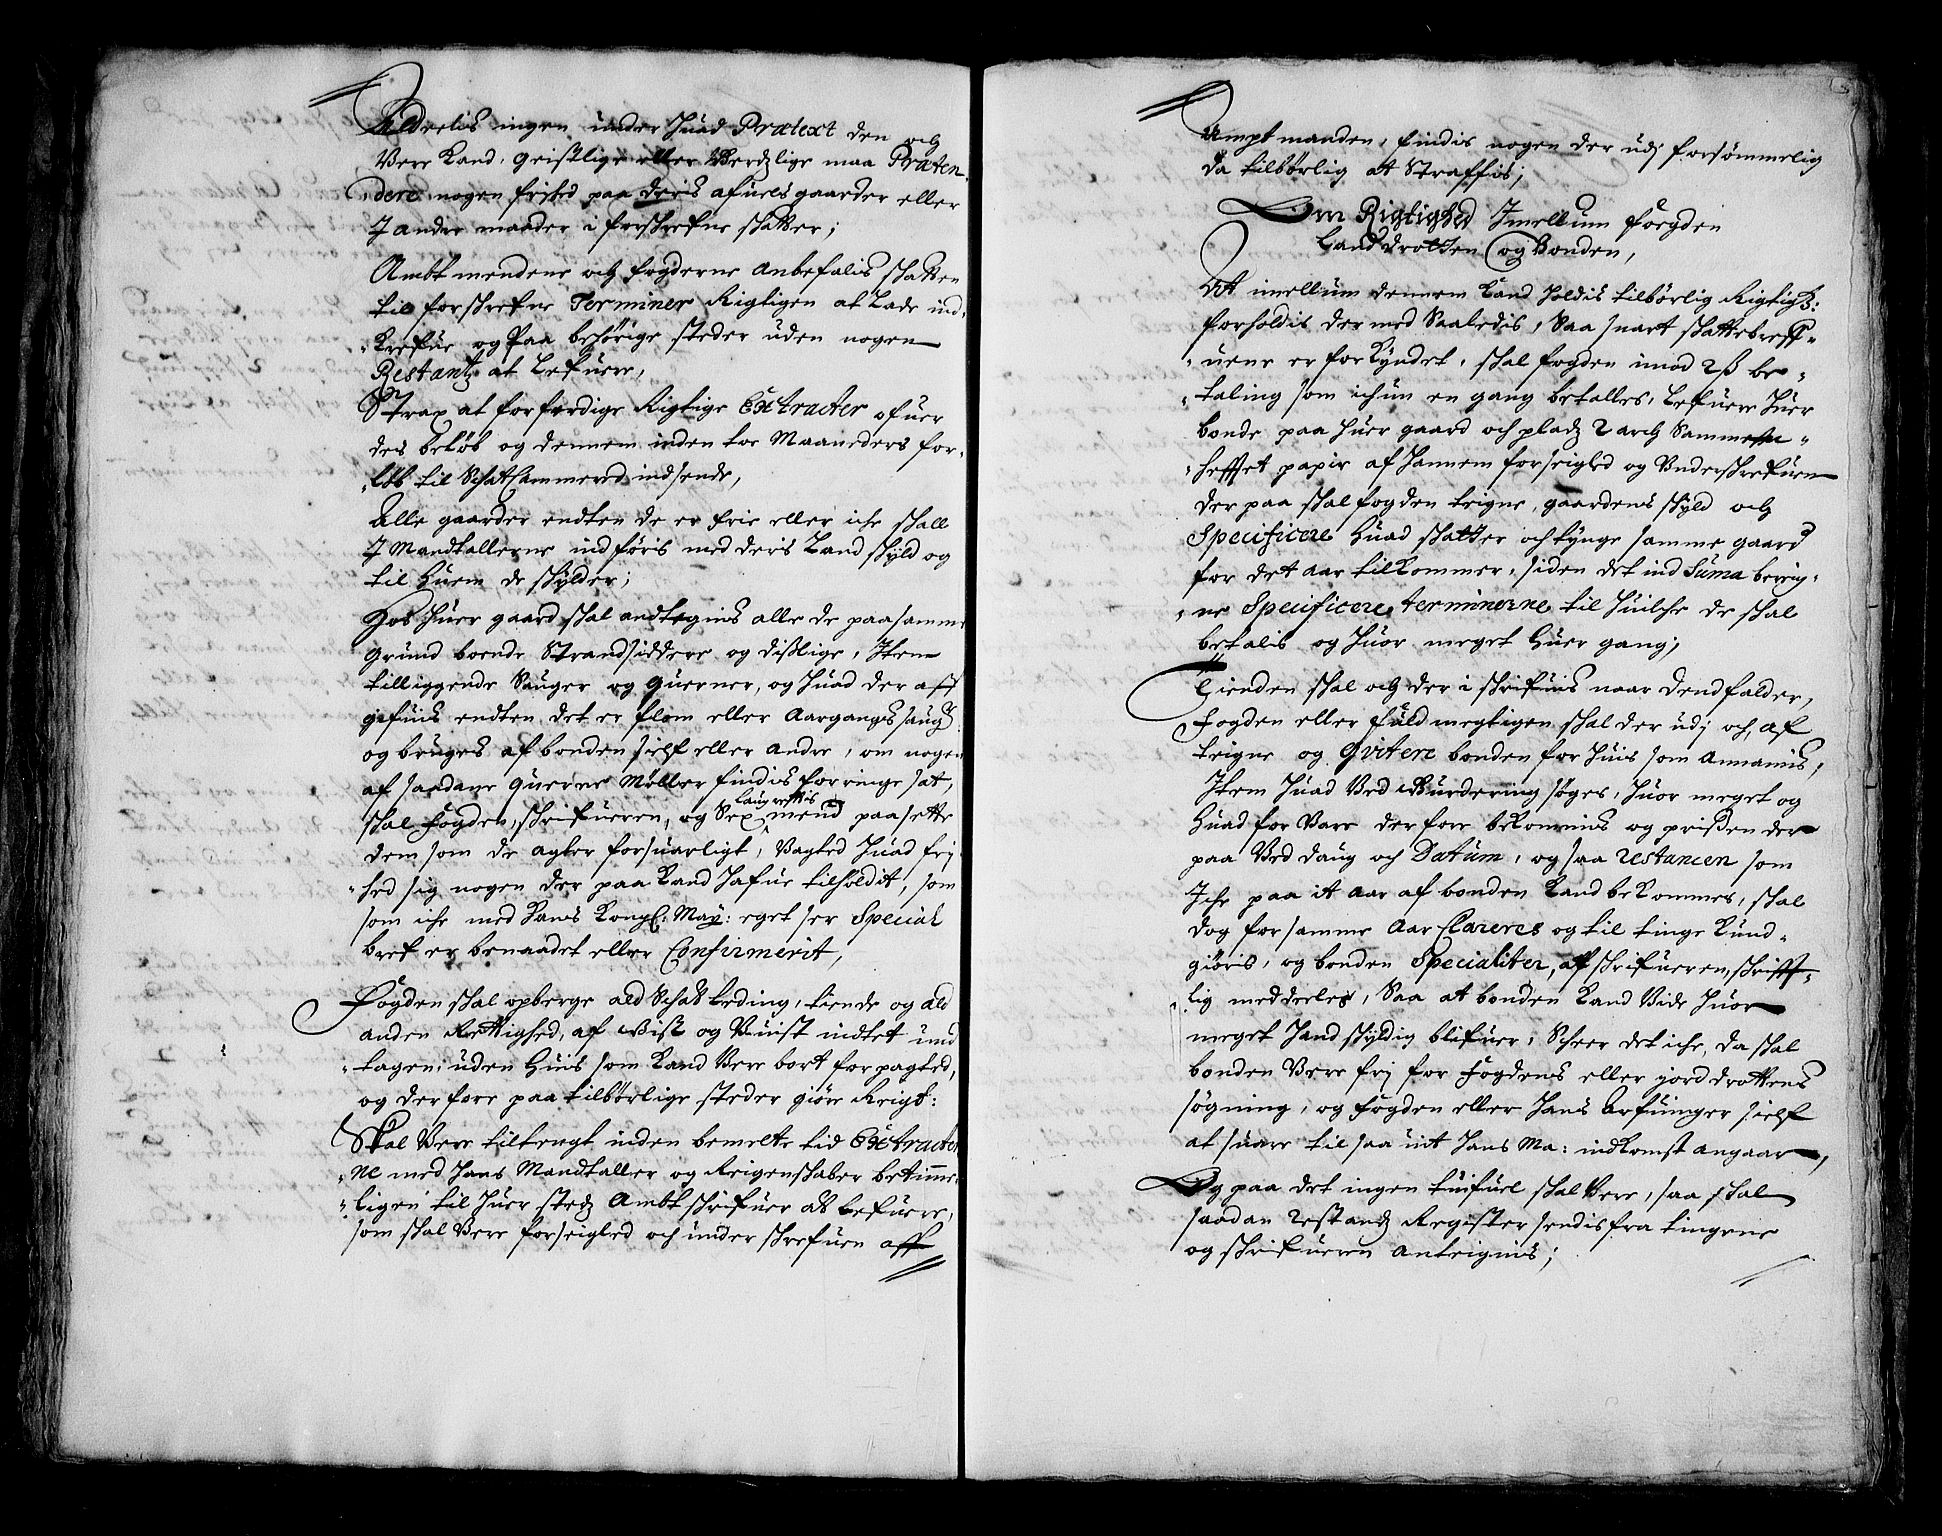 Aldrelis ingen under huad Prætext den och
Vere Kand, geistlige eller Verdzlige maa Præten-
dere nogen frihed paa deris afuels gaarder eller
J andre maader i forskrefne skatter;
Ambtmendene och fogderne anbefalis skatten
til forskrefne Terminer Rigtigen at Lade ind-
krefue og Paa behørige steder uden nogen
Restantz at Lefuere,
Strax at forferdige Rigtige Extracter ofuer
des beløb og dennem inden toe Maaneders for-
løb til Schatkammered indsende,
Alle gaarder endten de er frie eller iche skall
J Mandtallerne indføris med deris Land skyld og
til huem de skylder;
Hos huer gaard skal andtegnis alle de paa samme
grund boende Strandsiddere og dislige, Item
tilliggende Sauger og querner, og huad der aff
gifuis endten det er flom eller Aargangs saug
og bruges af bonden sielf eller andre, om nogen
af saadane querne Møller findis for ringe sat,
skal fogden, skrifueren, og Sex laugrettis mend paasette
dem som de agter forsuarligt, Vagted huad fri-
hed sig nogen der paa kand hafue tilholdit, som
som iche med Hans Kongl: May: eget her Special
bref er benaadet eller Confirmerit,
Fogden skal opberge ald Schat Leding, tiende og ald
anden Rettighed, af Vist og Vuist indtet und-
tagen, uden huis som kand Vere bort forpagted,
og derfore paa tilbørlige steder giøre Reigt:
Skal Vere tiltengt inden bemelte tid Extracter-
ne med hans Mandtaller og Reigenskaber betimme-
ligen til huer stedz Ambtskrifuer at Lefuere,
som skal Vere forseigled och underskrefuen aff
Amptmanden, findis nogen der udj forsømmelig
da tilbørlig at Straffis;
Om Rigtighed Imellum foegden
Landdrotten og Bonden,
At imellum dennem kand holdis tilbørlig Rigtigh:
forholdis der med Saaledis, Saa snart skattebreff-
uene er forkyndet, skal fogden imod 2 ß be-
taling som ichun en gang betalles, Lefuere huer
bonde paa huer gaard och pladz 2 arch Sammen-
hefftet papir af hannem forseigled og Underskrefuen
der paa skal fogden teigne, gaardens skyld och
Specificere huad skatter och tynge samme gaard
for det aar tilkommer, siden det ind Suma bereig-
ne Specificere terminerne til huilche de skal
betalis og huor meget huer gang;
Tienden skal och der i skrifuis naar dend falder,
Fogden eller fuldmegtigen skal der udj och, af
teigne og Qvitere bonden for huis som annamis,
Item huad Ved Vurdering søges, huor meget og
huad for Vare der fore bekommis og prissen der
paa Ved daug och Datum, og saa restancen som
Iche paa it aar af bonden kand bekommes, skal
dog for samme Aar Clareres og til tinge kund-
giøris, og bonden Specialiter, af skrifueren, skrifft-
lig meddeles, Saa at bonden kand Vide huor
meget hand skyldig blifuer, Scheer det iche, da skal
bonden Vere frj for Fogdens eller jorddrottens
søgning, og fogden eller hans Arfuinger sielf
at suare til saa uit hans Ma: indkomst angaar,
Og paa det ingen tuifuel skal Vere, saa skal
saadan restandz Register sendis fra tingene
og skrifueren anteignis;